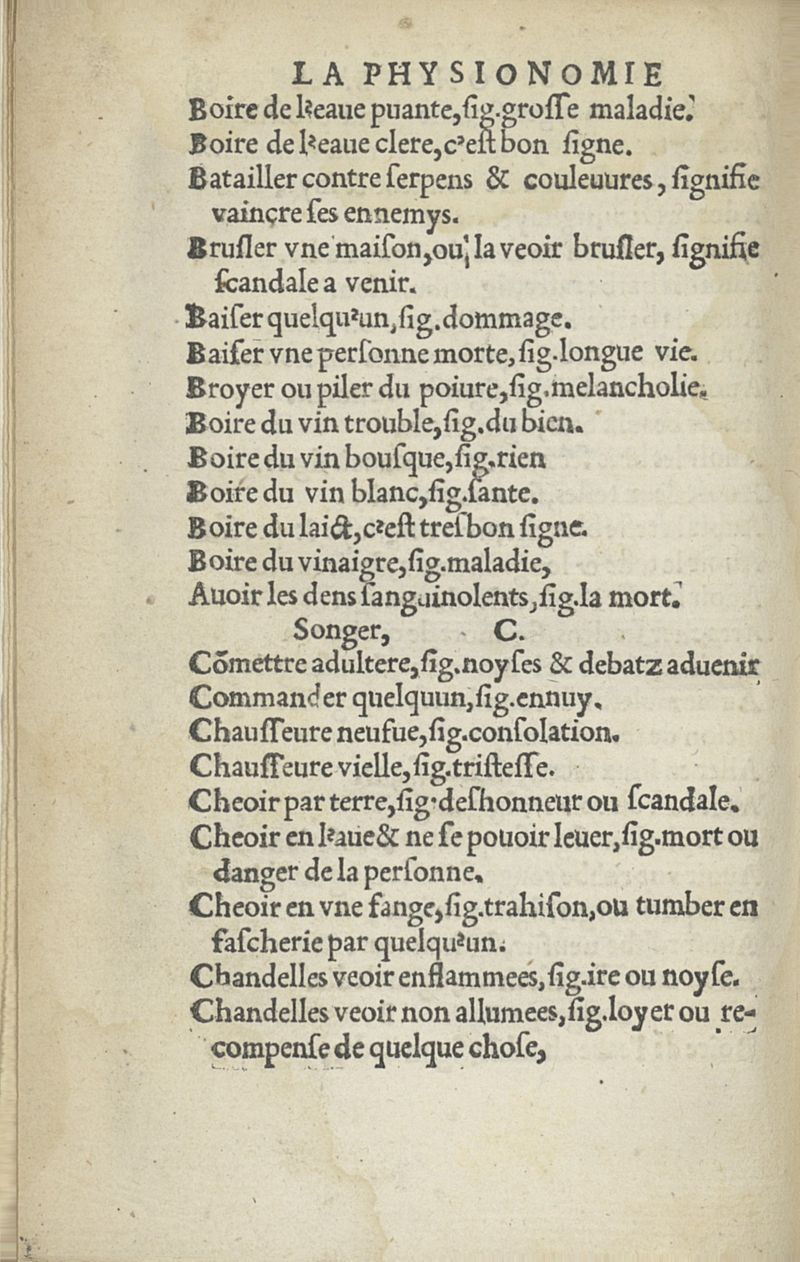 LA PHYSIONOMIE
Boire de l'eaue puante,ſig.groſſe maladie.
Boire de l'eaue clere,c'eſt bon ſigne.
Batailler contre ſerpens & couleuures, ſignifie
vaincre ſes ennemys.
Bruſler vne maiſon,ou la veoir bruſler, ſignifie
ſcandale a venir.
Baiſer quelqu'un,ſig.dommage.
Baiſer vne perſonne morte,ſig.longue vie.
Broyer ou piler du poiure,ſig.melancholie.
Boire du vin trouble,ſig.du bien.
Boire du vin bouſque,ſig.rien
Boire du vin blanc,ſig.ſante.
Boire du laict,c'eſt treſbon ſigne.
Boire du vinaigre,ſig.maladie,
Auoir les dens ſanguinolents,ſig.la mort.
Songer, C.
Cõmettre adultere,ſig.noyſes & debatz aduenir
Commander quelquun,ſig.ennuy.
Chauſſeure neufue,ſig.conſolation.
Chauſſeure vielle,ſig.triſteſſe.
Cheoir par terre,ſig.deſhonneur ou ſcandale.
Cheoir en l'aue& ne ſe pouoir leuer,ſig.mort ou
danger de la perſonne.
Cheoir en vne fange,ſig.trahiſon,ou tumber en
faſcherie par quelqu'un.
Chandelles veoir enflammees,ſig.ire ou noyſe.
Chandelles veoir non allumees,ſig.loyer ou re-
compenſe de quelque choſe,